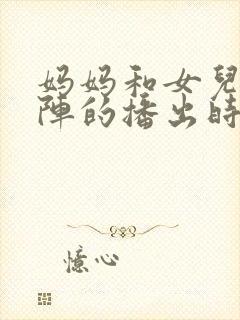 妈妈和女兒
陣的播出時
憶心